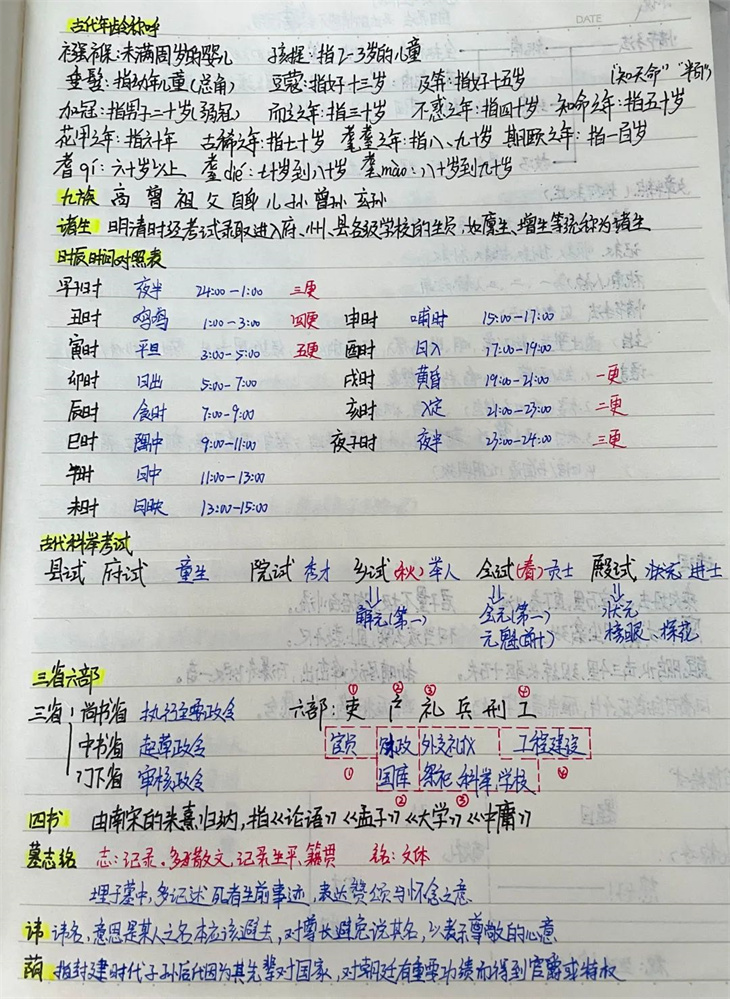 古代年龄称呼
DATE
襁褓:未满周岁的婴儿 孩提:指2-3岁的儿童
垂髫:指幼年儿童(总角) 豆蔻:指女子十三岁 及笄:指女子十五岁 (“知天命”“半百”)
加冠:指男子二十岁(弱冠) 而立之年:指三十岁 不惑之年:指四十岁 知命之年:指五十岁
花甲之年:指六十年 古稀之年:指七十岁 耄耋之年:指八、九十岁 期颐之年:指一百岁
耆qí:六十岁以上 耋dié:七十岁到八十岁 耄mào:八十岁到九十岁
九族 高 曾 祖 父 自身 儿 孙 曾孙 玄孙
诸生 明清时经考试录取进入府、州、县各级学校的生员,如廪生、增生等统称为诸生
时辰时间对照表
早子时 夜半 24:00-1:00 三更
丑时 鸡鸣 1:00-3:00 四更 申时 哺时 15:00-17:00
寅时 平旦 3:00-5:00 五更 酉时 日入 17:00-19:00
卯时 日出 5:00-7:00 戌时 黄昏 19:00-21:00 一更
辰时 食时 7:00-9:00 亥时 人定 21:00-23:00 二更
巳时 隅中 9:00-11:00 夜子时 夜半 23:00-24:00 三更
午时 日中 11:00-13:00
未时 日昳 13:00-15:00
古代科举考试
县试 府试 童生 院试 秀才 乡试(秋)举人 会试(春)贡士 殿试 状元 进士
解元(第一) 会元(第一) 状元
元魁(前十) 榜眼、探花
三省六部
① ② ③ ④
三省:尚书省 执行主要政令 六部:吏 户 礼 兵 刑 工
中书省 起草政令 官员 财政 外交礼仪 工程建设
门下省 审核政令 ① 国库 祭祀、科举学校 ④
② ③
四书 由南宋的朱熹归纳,指《论语》《孟子》《大学》《中庸》
墓志铭 志:记录。多为散文,记录生平、籍贯 铭:文体
埋于墓中,多记述死者生前事迹,表达赞颂与怀念之意
讳 讳名,意思是某人之名本应该避去,对尊长避免说其名,以表示尊敬的心意
荫 指封建时代子孙后代因为其先辈对国家,对朝廷有重要功绩而得到官爵或特权